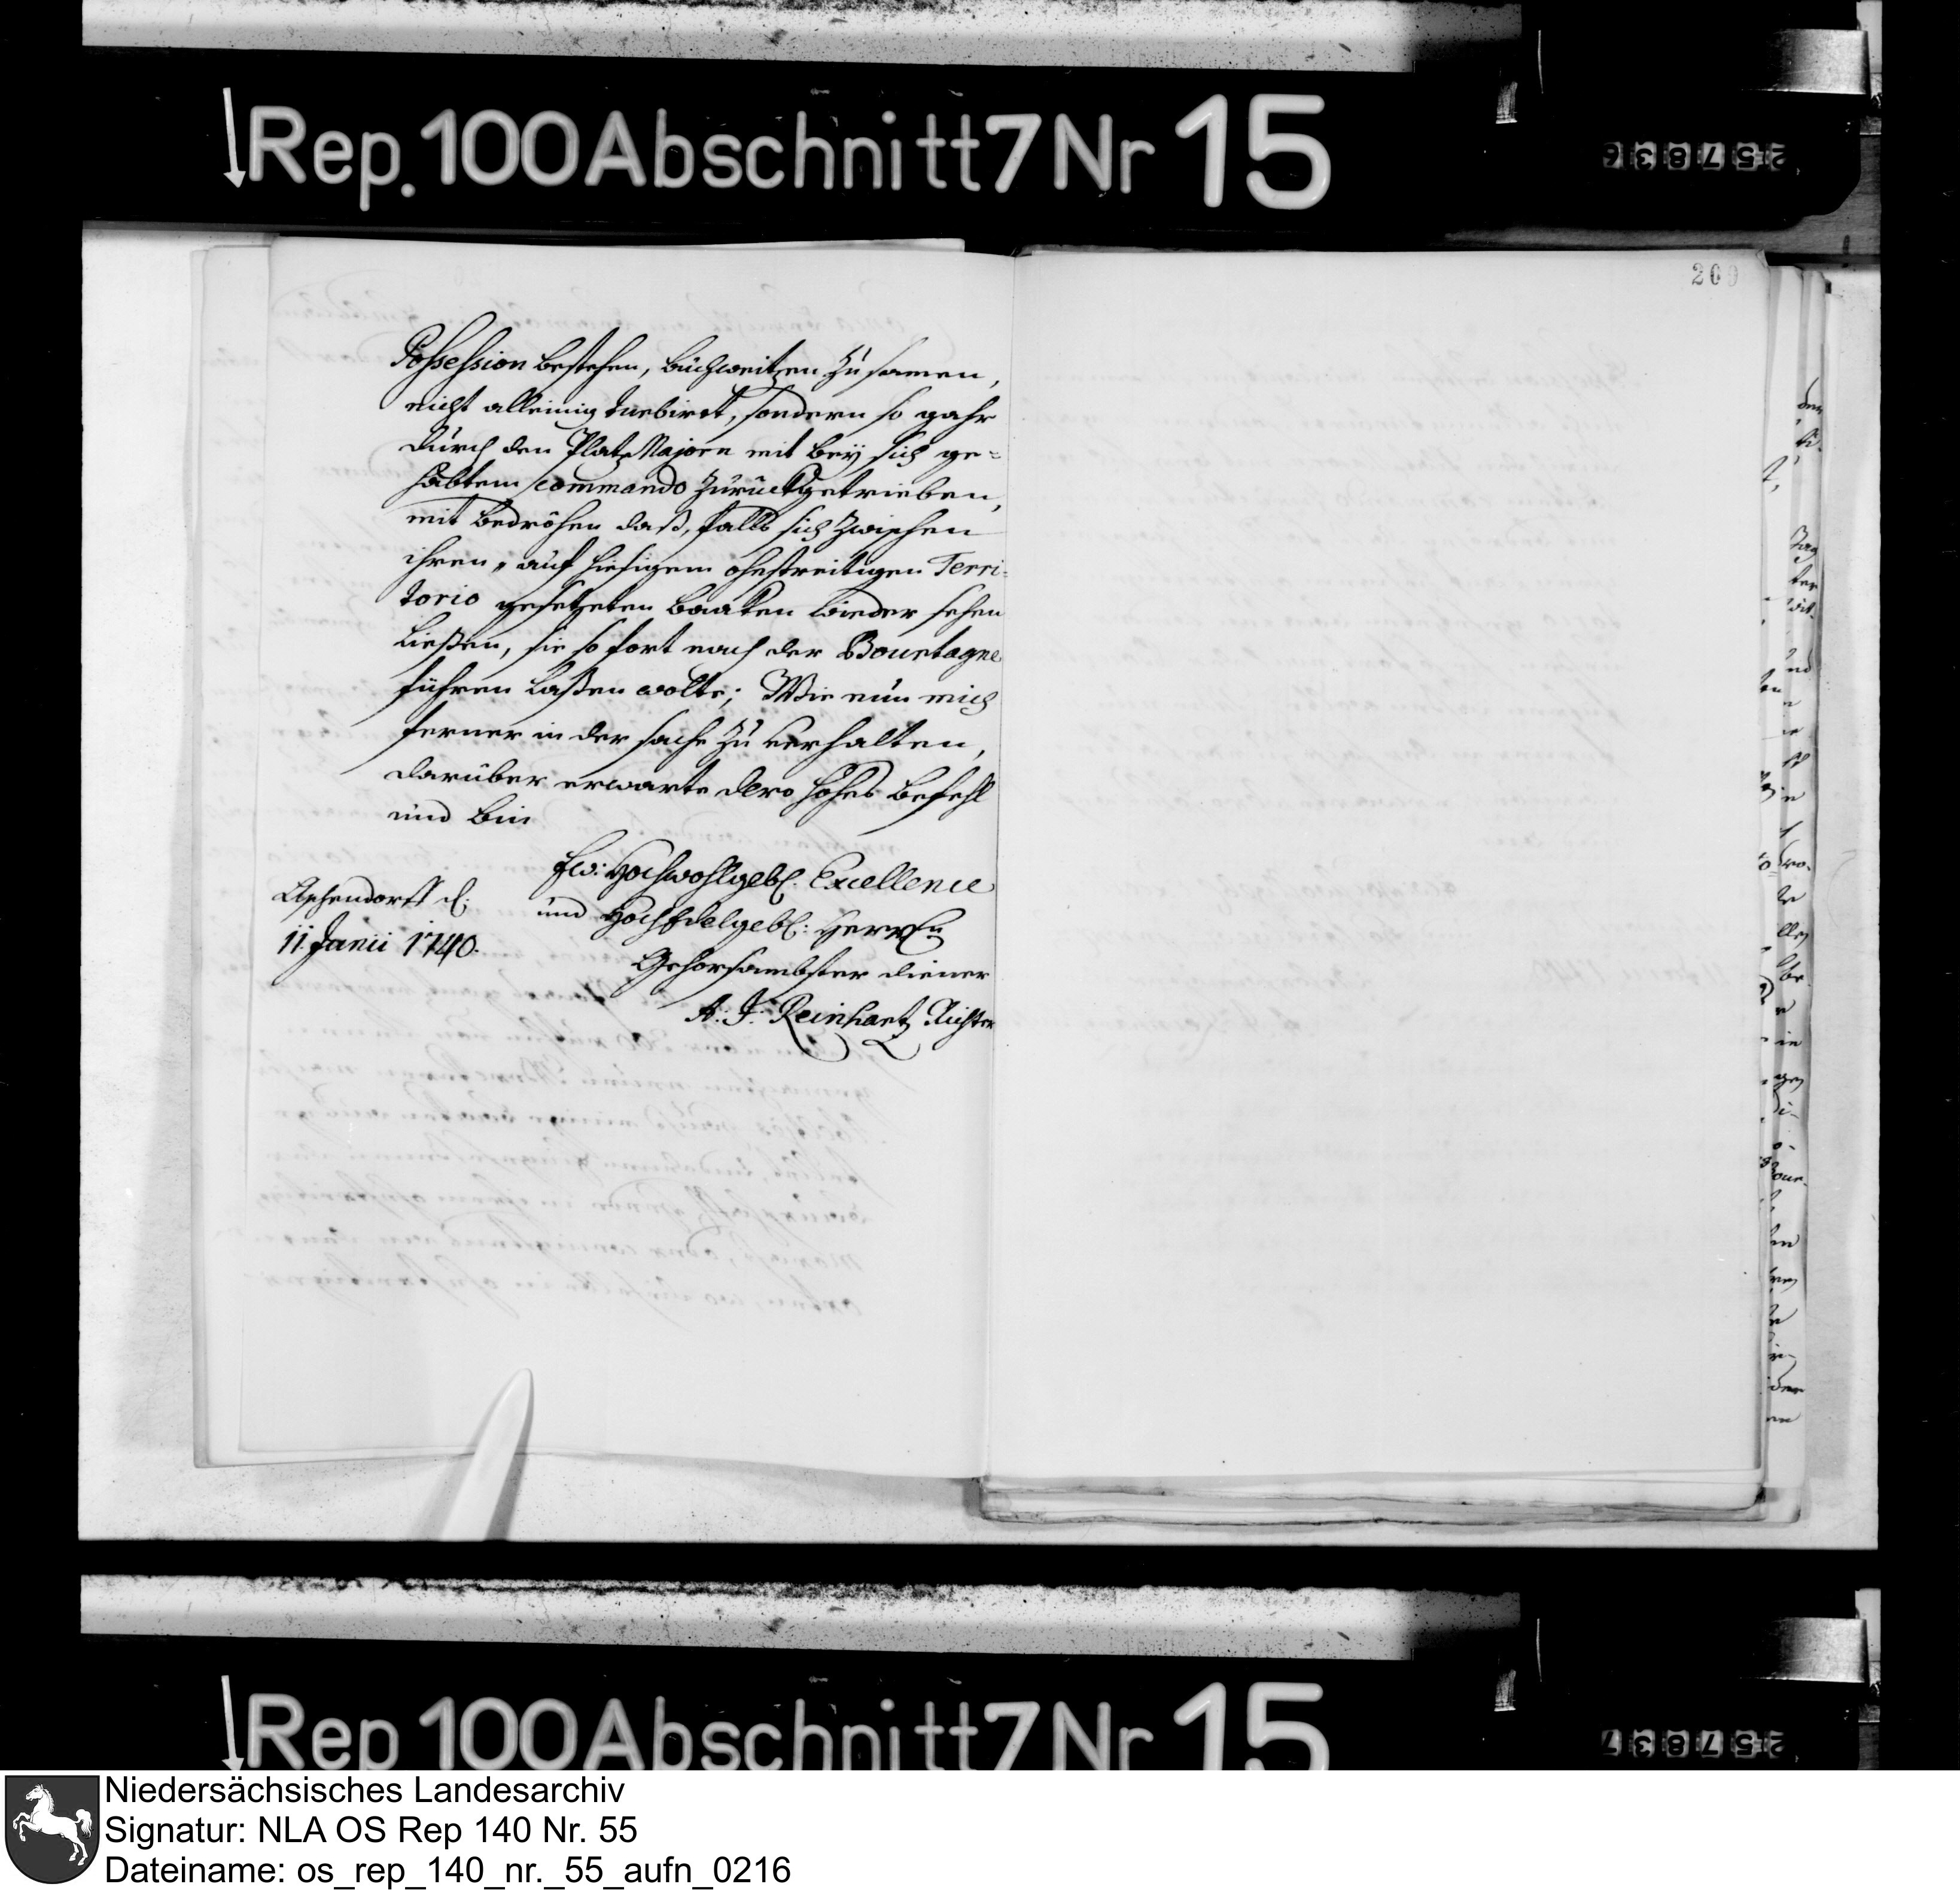 Rep. 100 Abschnitt 7 Nr 15
257836
260
Possession bestehen, buchweitzen zu samen,
nicht alleinig turbiret, sondern so gahr
durch den Platz Majorn mit bey sich ge=
habtem commando zurückgetrieben,
mit bedrohen daß, falls sich zwischen
ihren, auf hiesigem ohnstreitigen Terri=
torio gesetzeten baaken wieder sehen
ließen, sie so fort nach der Bourtagne
führen laßen wolte; Wie nun mich
ferner in der sache zu verhalten,
darüber erwarte dero hohes befehl
und bin
Ew: Hochwohlgebl. Excellence
und HochEdelgebl: Herren
Gehorsambster diener
A: J: Reinhartz Richter
Aschendorff d.
11. Junii 1740.
Rep 100 Abschnitt 7 Nr 15
257837
Niedersächsisches Landesarchiv
Signatur: NLA OS Rep 140 Nr. 55
Dateiname: os_rep_140_nr._55_aufn_0216